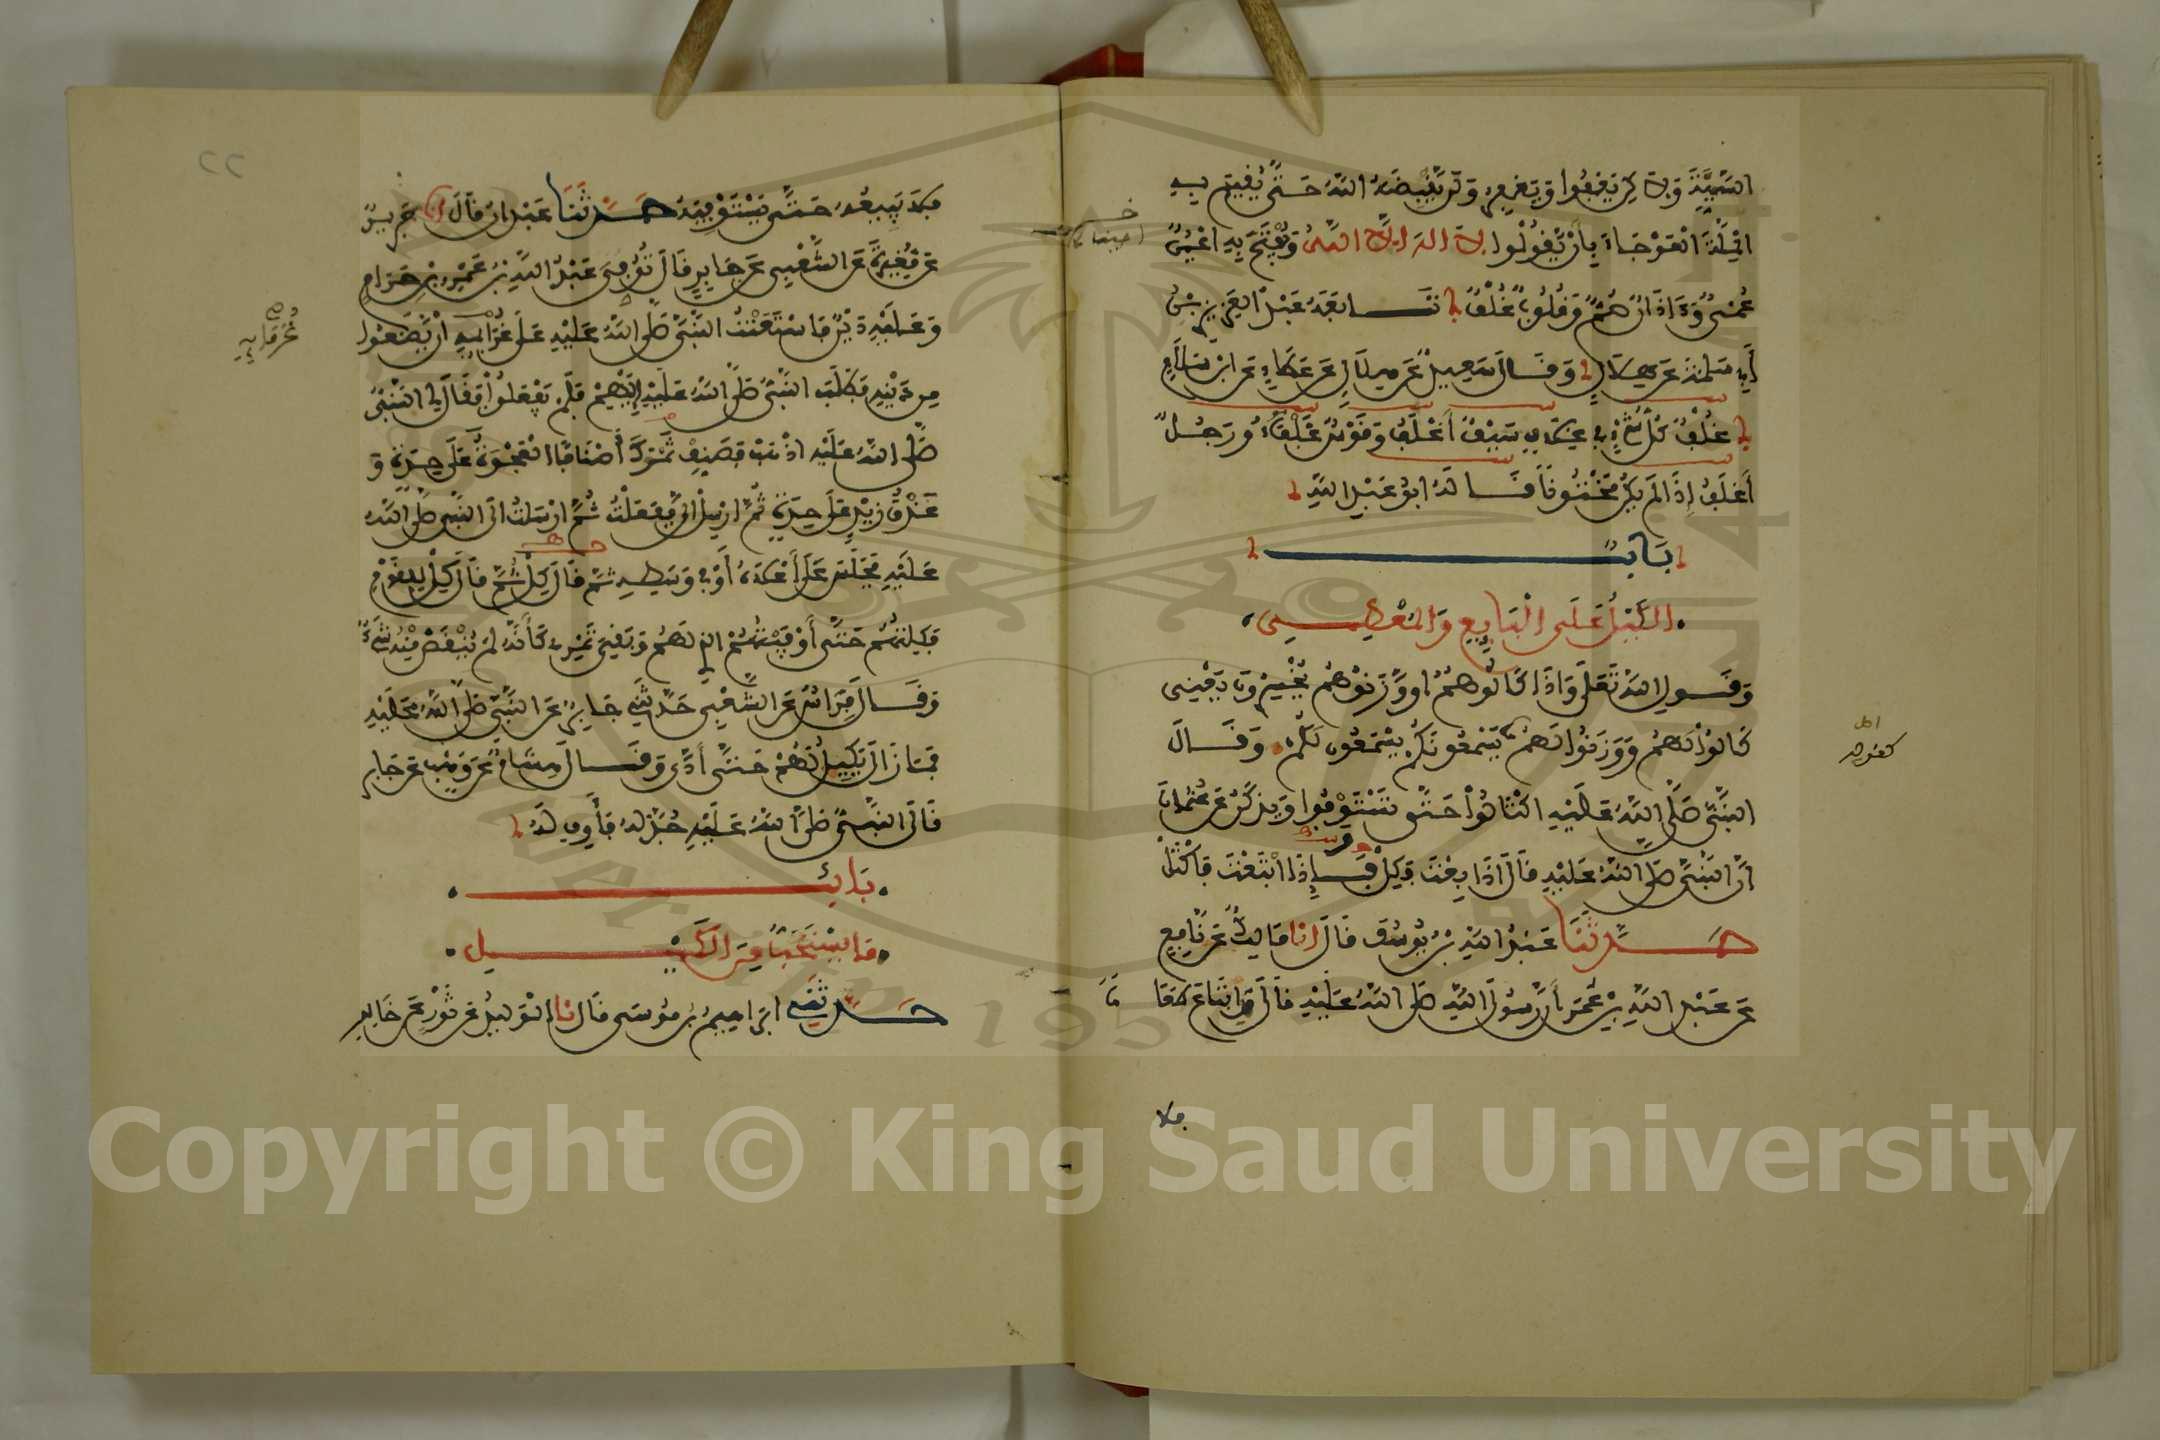 السَّيِّئَةَ وَلَاكِنْ يَعْفُوا وَيَغْفِرُ وَلَنْ يَّقْبِضَهُ اللَّهُ حَتَّى يُقِيمَ بِهِ
الْمِلَّةَ الْعَوْجَاءَ بِأَنْ يَّقُولُوا لَا إِلَهَ إِلَّا اللَّهُ وَيُفْتَحَ بِهِ أَعْيُنٌ
عُمْيٌ وَءَاذَانٌ صُمٌّ وَقُلُوبٌ غُلْفٌ تَابَعَهُ عَبْدُ الْعَزِيزِ بْنُ
أَبِي سَلَمَةَ عَنْ هِلَالٍ وَقَالَ سَعِيدٌ عَنْ هِلَالٍ عَنْ عَطَاءٍ عَنِ ابْنِ سَلَامٍ
غُلْفٌ كُلُّ شَيْءٍ فِي غِلَافٍ سَيْفٌ أَغْلَفُ وَقَوْسٌ غَلْفَاءُ وَرَجُلٌ
أَغْلَفُ إِذَا لَمْ يَكُنْ مَخْتُونًا قَالَهُ أَبُو عَبْدِ اللَّهِ
بَابُ
الْكَيْلِ عَلَى الْبَايِعِ وَالْمُعْطِي
وَقَوْلِ اللَّهِ تَعَلَى وَإِذَا كَالُوهُمُ أَو وَّزَنُوهُمْ يُخْسِرُونَ يَعْنِي
كَالُوا لَهُمْ وَوَزَنُوا لَهُمْ يَسْمَعُونَكُمْ يَسْمَعُونَ لَكُمْ وَقَالَ
النَّبِيُّ صَلَّى اللَّهُ عَلَيْهِ اكْتَالُوا حَتَّى تَسْتَوْفُوا وَيُذْكَرُ عَنْ عُثْمَانَ
أَنَّ النَّبِيَّ صَلَّى اللَّهُ عَلَيْهِ قَالَ إِذَا بِعْتَ فَكِلْ فَإِذَا ابْتَعْتَ فَاكْتَلْ
حَدَّثَنَا عَبْدُ اللَّهِ بْنُ يُوسُفَ قَالَ انا مَالِكٌ عَنْ نَافِعٍ
عَنْ عَبْدِ اللَّهِ بْنِ عُمَرَ أَنَّ رَسُولَ اللَّهِ صَلَّى اللَّهُ عَلَيْهِ قَالَ مَنِ ابْتَاعَ طَعَامًا
فلا
فَلَا يَبِيعُهُ حَتَّى يَسْتَوْفِيَهُ حَدَّثَنَا عَبْدَانُ قَالَ انا جَرِيرٌ
عَنْ مُغِيرَةَ عَنِ الشَّعْبِيِّ عَنْ جَابِرٍ قَالَ تُوُفِّيَ عَبْدُ اللَّهِ بْنُ عَمْرِو بْنِ حَرَامٍ
وَعَلَيْهِ دَيْنٌ فَاسْتَعَنْتُ النَّبِيَّ صَلَّى اللَّهُ عَلَيْهِ عَلَى غُرَمَائِهِ أَنْ يَّضَعُوا
مِنْ دَيْنِهِ فَطَلَبَ النَّبِيُّ صَلَّى اللَّهُ عَلَيْهِ إِلَيْهِمْ فَلَمْ يَفْعَلُوا فَقَالَ لِي النَّبِيُّ
صَلَّى اللَّهُ عَلَيْهِ اذْهَبْ فَصَنِّفْ تَمْرَكَ أَصْنَافًا الْعَجْوَةَ عَلَى حِدَةٍ وَ
عَذْقَ زَيْدٍ عَلَى حِدَةٍ ثُمَّ أَرْسِلْ إِلَيَّ فَفَعَلْتُ ثُمَّ أَرْسَلْتُ إِلَى النَّبِيِّ صَلَّى اللَّهُ
عَلَيْهِ فَجَلَسَ عَلَى أَعْلَاهُ أَوْ فِي وَسَطِهِ ثُمَّ قَالَ كِلْ ثُمَّ قَالَ كِلْ لِلْقَوْمِ
فَكِلْتُهُمْ حَتَّى أَوْفَيْتُهُمُ الَّذِي لَهُمْ وَبَقِيَ تَمْرِي كَأَنَّهُ لَمْ يَنْقُصْ مِنْهُ شَيْءٌ
وَقَالَ فِرَاسٌ عَنِ الشَّعْبِيِّ حَدَّثَنِي جَابِرٌ عَنِ النَّبِيِّ صَلَّى اللَّهُ عَلَيْهِ
فَمَا زَالَ يَكِيلُ لَهُمْ حَتَّى أَدَّى وَقَالَ هِشَامٌ عَنْ وَهْبٍ عَنْ جَابِرٍ
قَالَ النَّبِيُّ صَلَّى اللَّهُ عَلَيْهِ جُذَّ لَهُ فَأَوْفِ لَهُ
بَابُ
مَا يُسْتَحَبُّ مِنَ الْكَيْلِ
حَدَّثَنِي إِبْرَاهِيمُ بْنُ مُوسَى قَالَ نا الْوَلِيدُ عَنْ ثَوْرٍ عَنْ خَالِدِ
٢٢
Copyright © King Saud University
1957